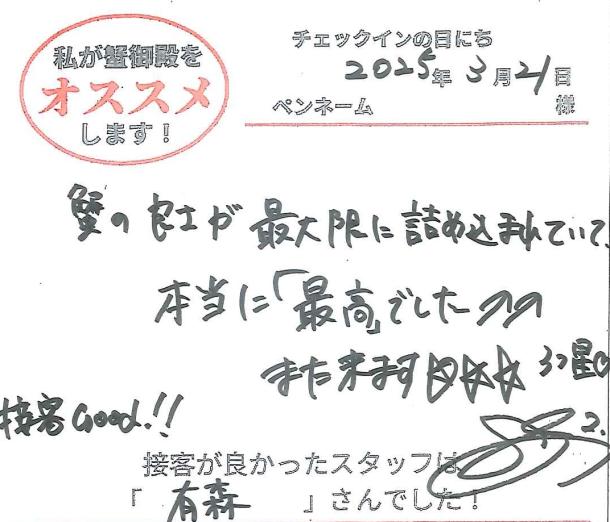 私が蟹御殿を
オススメ
します!
チェックインの日にち
2025年 3月21日
ペンネーム 様
蟹の良さが最大限に詰め込まれていて、
本当に「最高」でした♪♪
また来ます☆☆☆ 3つ星
接客Good!!
接客が良かったスタッフは
「 有森 」さんでした!